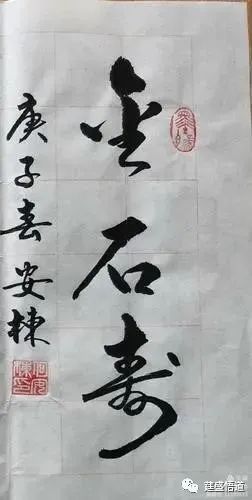 金石寿
庚子春安栋
莛盛悟道